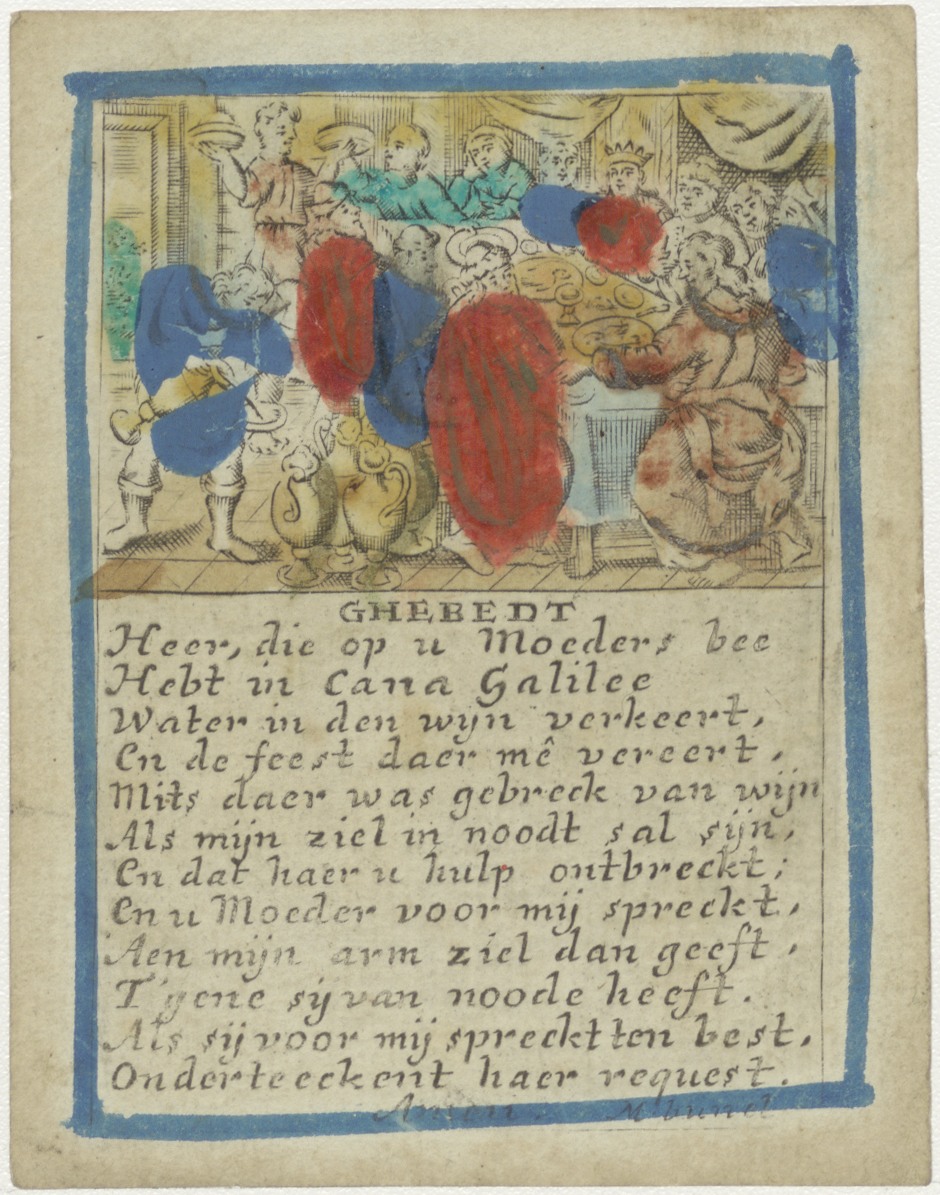 GHEBEDT
Heer, die op u Moeders bee
Hebt in Cana Galilee
Water in den wijn verkeert,
En de feest daer mê vereert,
Mits daer was gebreck van wijn
Als mijn ziel in noodt sal sijn,
En dat haer u hulp ontbreckt;
En u Moeder voor mij spreckt,
Aen mijn arm ziel dan geeft,
T'gene sij van noode heeft.
Als sij voor mij spreckt ten best,
Onderteeckent haer request.
Amen.